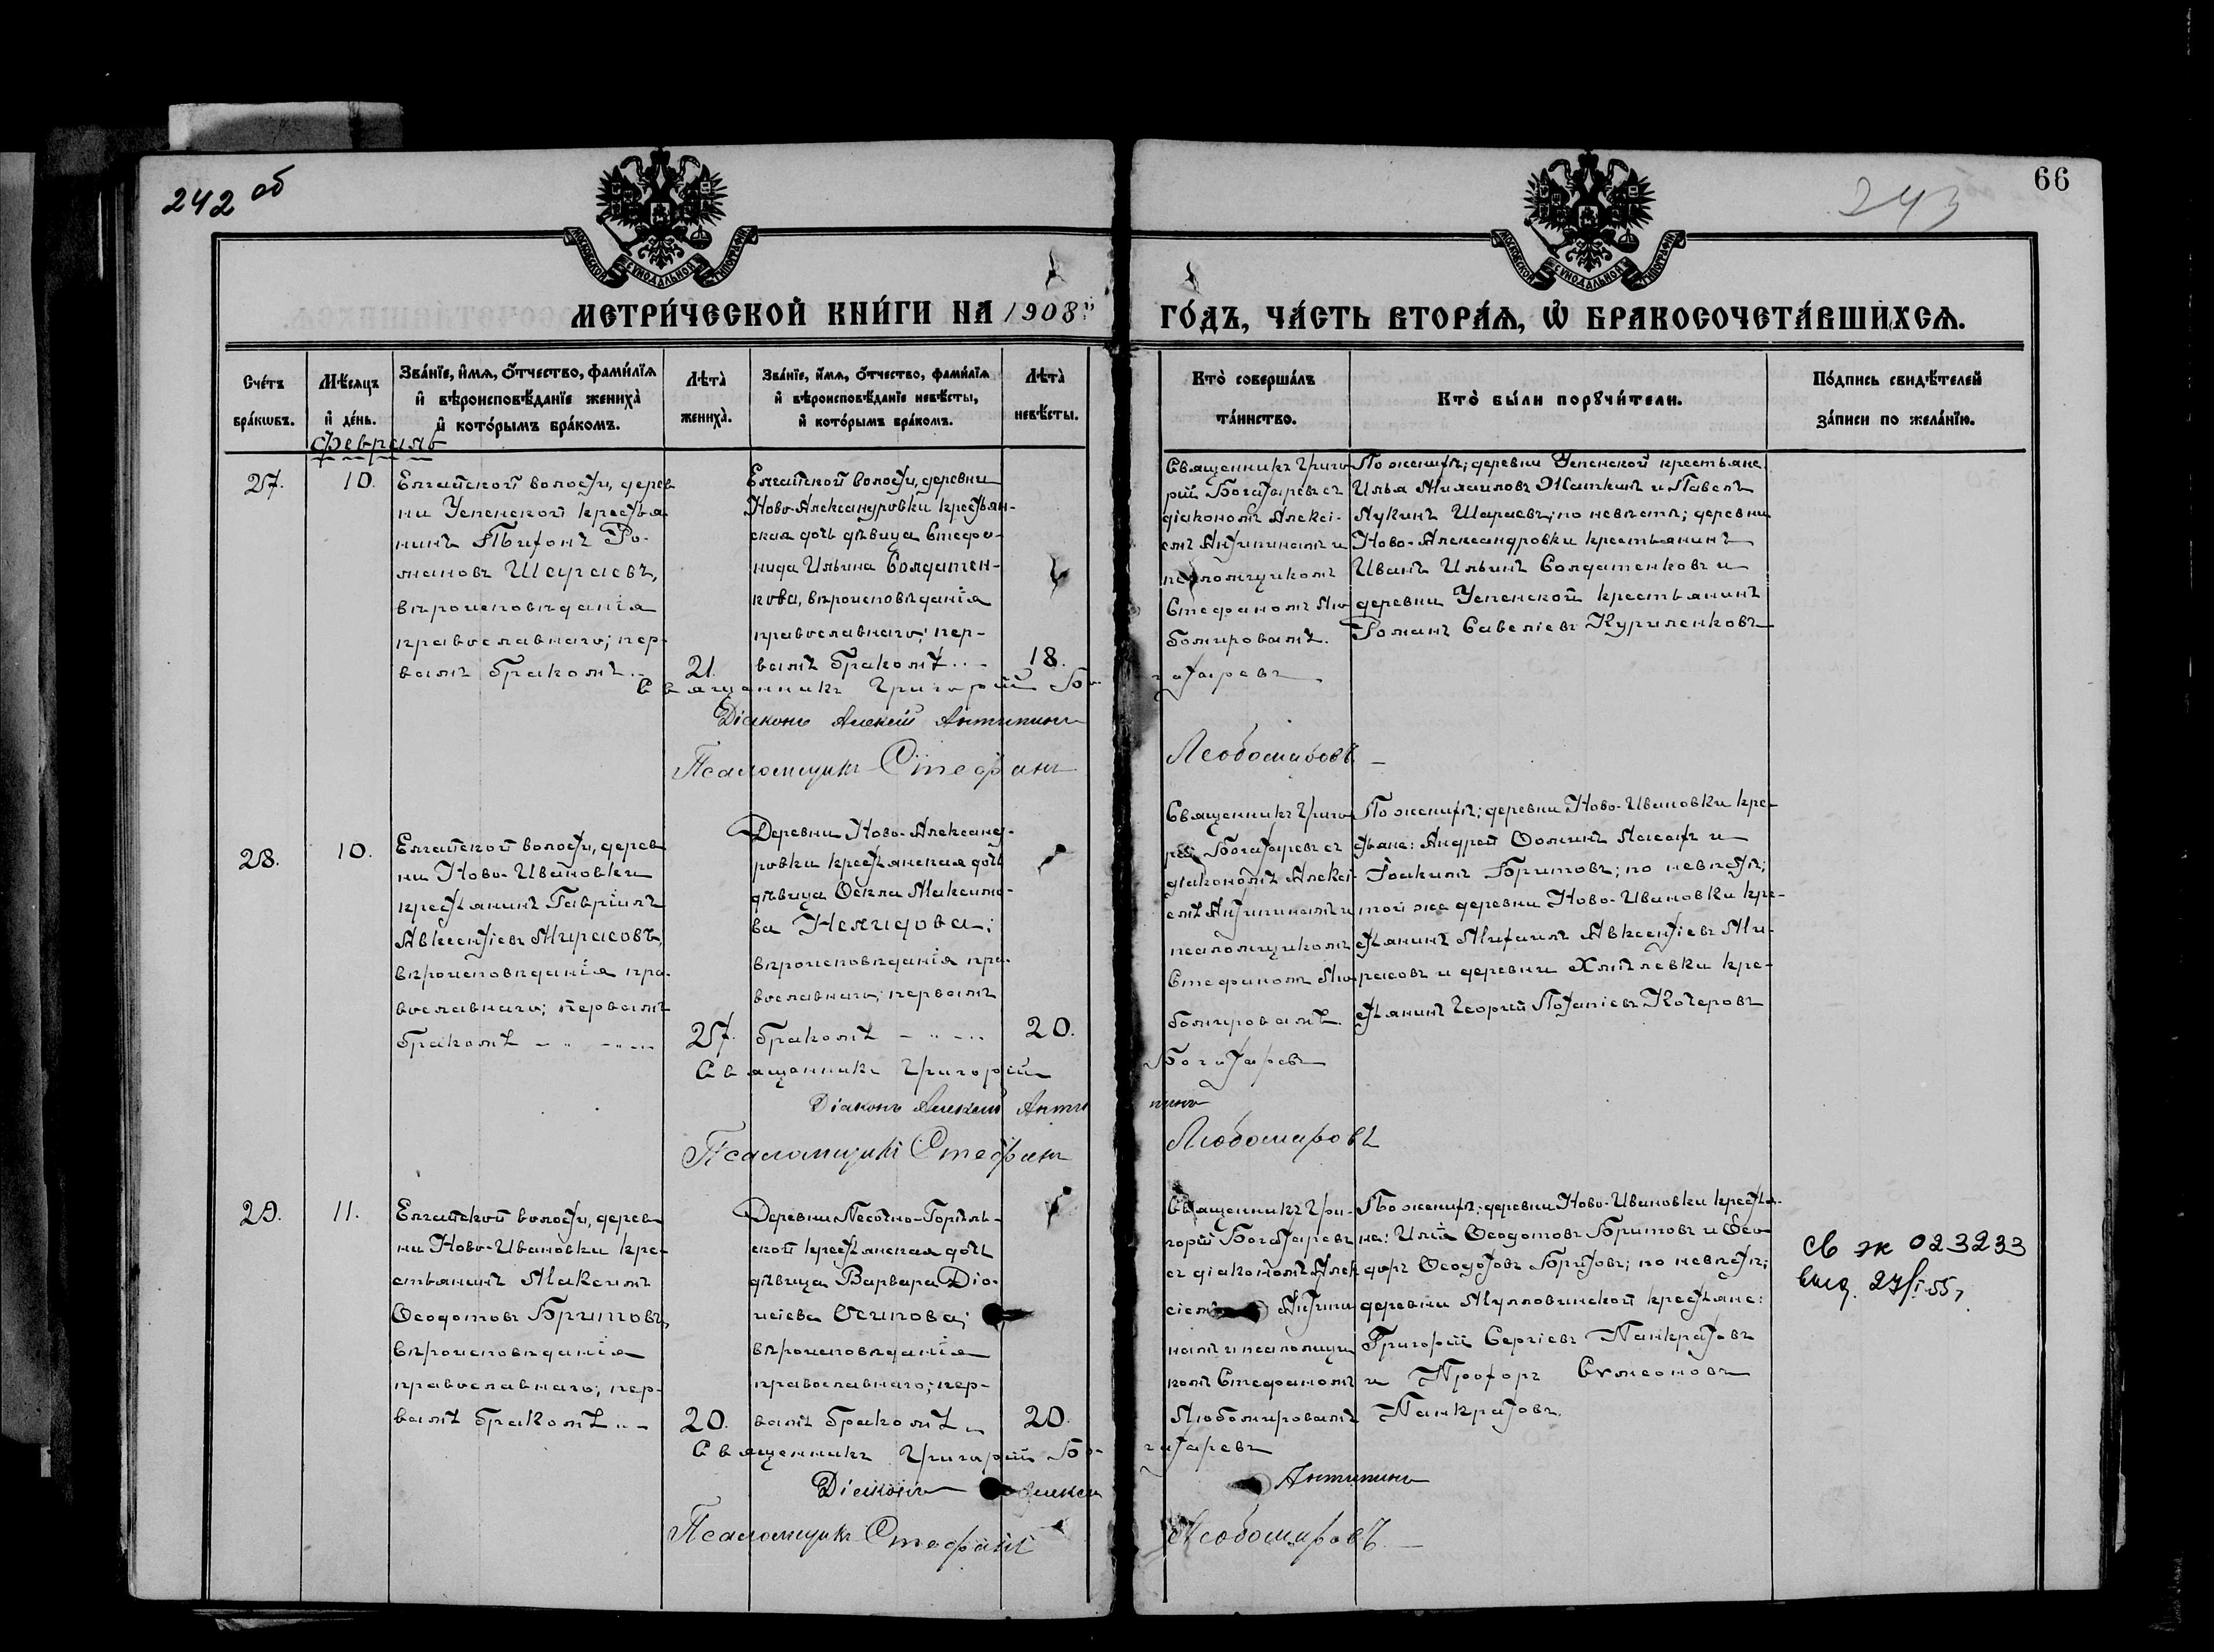 242 об
243
66
МОСКОВСКОЙ СѴНОДАЛЬНОЙ ТИПОГРАФІИ
МОСКОВСКОЙ СѴНОДАЛЬНОЙ ТИПОГРАФІИ
МЕТРИ́ЧЕСКОЙ КНИ́ГИ НА 1908й
ГО́ДЪ, ЧА́СТЬ ВТОРА́Я, Ѡ҆ БРАКОСОЧЕТА́ВШИХСЯ.
Сче́тъ
бра́кѡвъ.
Мѣ́сяцъ
и҆ де́нь.
Зва́нїе, и҆́мя, ѻ҆́тчество, фами́лїя
и҆ вѣроисповѣ́данїе жениха̀
и҆ кото́рымъ бра́комъ.
Лѣта̀
жениха̀.
Зва́нїе, и҆́мя, ѻ҆́тчество, фами́лїя
и҆ вѣроисповѣ́данїе невѣ́сты,
и҆ кото́рымъ бра́комъ.
Лѣта̀
невѣ́сты.
Кто̀ соверша́лъ
та́инство.
Кто̀ бы́ли порꙋчи́тели.
По́дпись свидѣ́телей
за́писи по жела́нїю.
Февраль
27.
10.
Елгайской волости, дерев
ни Успенской крестья
нинъ Трифонъ Ро-
мановъ Шараевъ,
вѣроисповѣданія
православнаго; пер-
вымъ бракомъ
21.
Елгайской волости, деревни
Ново-Александровки крестьян-
ская дочь дѣвица Стефа-
нида Ильина Солдатен-
кова, вѣроисповѣданія
православнаго; пер-
вымъ бракомъ
18.
Священникъ Григо
рій Богатаревъ съ
діакономъ Алексі-
емъ Антипинымъ и
псаломщикомъ
Стефаномъ Лю
бомировымъ.
По женихѣ; деревни Успенской крестьяне
Илья Михаиловъ Жаткинъ и Павелъ
Лукинъ Шараевъ; по невѣстѣ; деревни
Ново-Александровки крестьянинъ
Иванъ Ильинъ Солдатенковъ и
деревни Успенской крестьянинъ
Романъ Савеліевъ Куриленковъ
Священникъ Григорій Богатаревъ
Діаконъ Алексій Антипинъ
Псаломщикъ Стефанъ Любомировъ
28.
10.
Елгайской волости, дерев
ни Ново-Ивановки
крестьянинъ Гавріилъ
Авксентіевъ Мирасовъ,
вѣроисповѣданія пра-
вославнаго; первымъ
бракомъ
27.
Деревни Ново-Александ-
ровки крестьянская дочь
дѣвица Ѳекла Максимо-
ва Нелидова;
вѣроисповѣданія пра-
вославнаго; первымъ
бракомъ
20.
Священникъ Григо
рій Богатаревъ съ
діакономъ Алексі-
емъ Антипинымъ и
псаломщикомъ
Стефаномъ Лю
бомировымъ.
По женихѣ; деревни Ново-Ивановки кре-
стьяне: Андрей Ѳоминъ и
Іоакимъ Бритовъ; по невѣстѣ;
той же деревни Ново-Ивановки кре-
стьянинъ Михаилъ Авксентіевъ Ми-
расовъ и деревни Хмѣлевки кре-
стьянинъ Георгій Потапіевъ Кочеровъ
Священникъ Григорій Богатаревъ
Діаконъ Алексій Антипинъ
Псаломщикъ Стефанъ Любомировъ
29.
11.
Елгайской волости, дерев
ни Ново-Ивановки кре-
стьянинъ Максимъ
Ѳеодотовъ Бритовъ,
вѣроисповѣданія
православнаго; пер-
вымъ бракомъ
20.
Деревни Песочно-Горѣль-
ской крестьянская дочь
дѣвица Варвара Діо-
нисіева Осипова;
вѣроисповѣданія
православнаго; пер-
вымъ бракомъ
20.
Священникъ Гри-
горій Богатаревъ
съ діакономъ Алек
сіемъ Антипи
нымъ и псаломщи
комъ Стефаномъ
Любомировымъ
По женихѣ; деревни Ново-Ивановки крестья-
не: Илія Ѳеодотовъ Бритовъ и Ѳео-
доръ Ѳеодотовъ Бритовъ; по невѣстѣ;
деревни Мулловинской крестьяне:
Григорій Сергіевъ Панкратовъ
и Прохоръ Сѵмеоновъ
Панкратовъ.
Св ж 023233
выд. 27/I 55,
Священникъ Григорій Богатаревъ
Діаконъ Алексій Антипинъ
Псаломщикъ Стефанъ Любомировъ